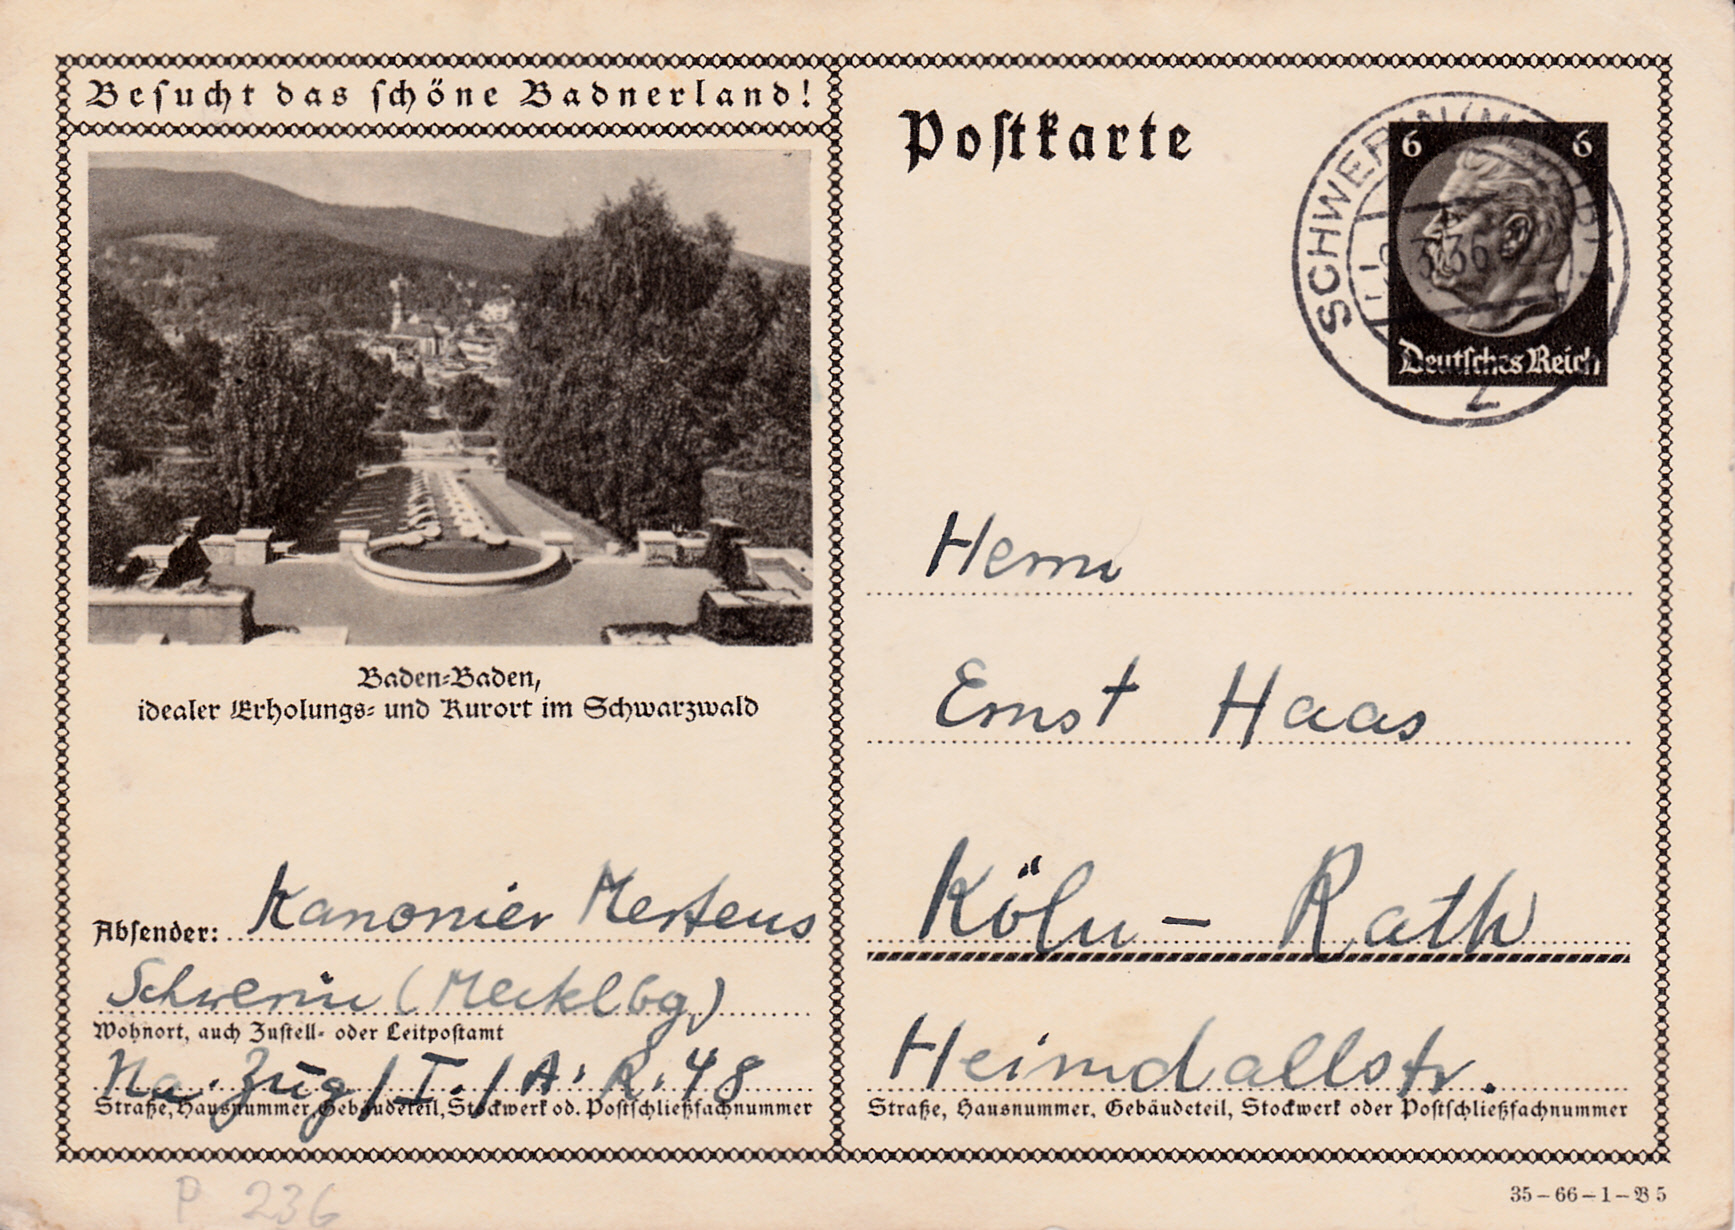 Besucht das schöne Badnerland!
Postkarte
6 6
Deutsches Reich
SCHWERIN
3.36
2
Baden-Baden,
idealer Erholungs- und Kurort im Schwarzwald
Absender: Kanonier Mertens
Schwerin (Mecklbg)
Wohnort, auch Zustell- oder Leitpostamt
Na. Zug / I. / A. R. 48
Straße, Hausnummer, Gebäudeteil, Stockwerk od. Postschließfachnummer
Herrn
Ernst Haas
Köln - Rath
Heimdallstr.
Straße, Hausnummer, Gebäudeteil, Stockwerk oder Postschließfachnummer
35-66-1-B 5
P 236